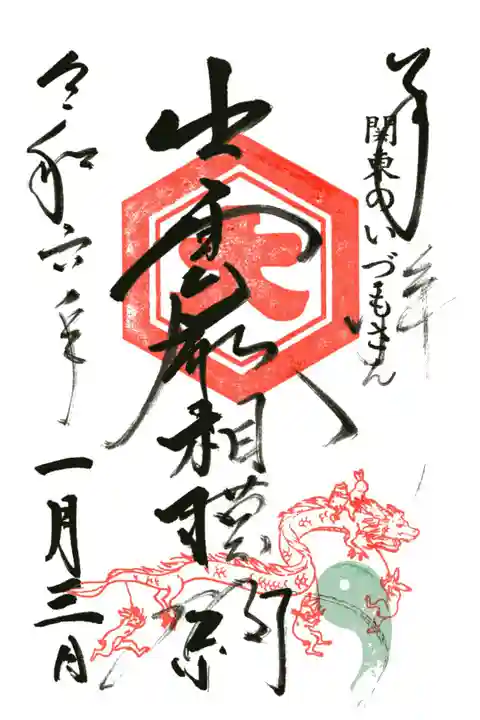 奉拝
関東のいづもさん
出雲大社相模分祠
令和六年一月三日